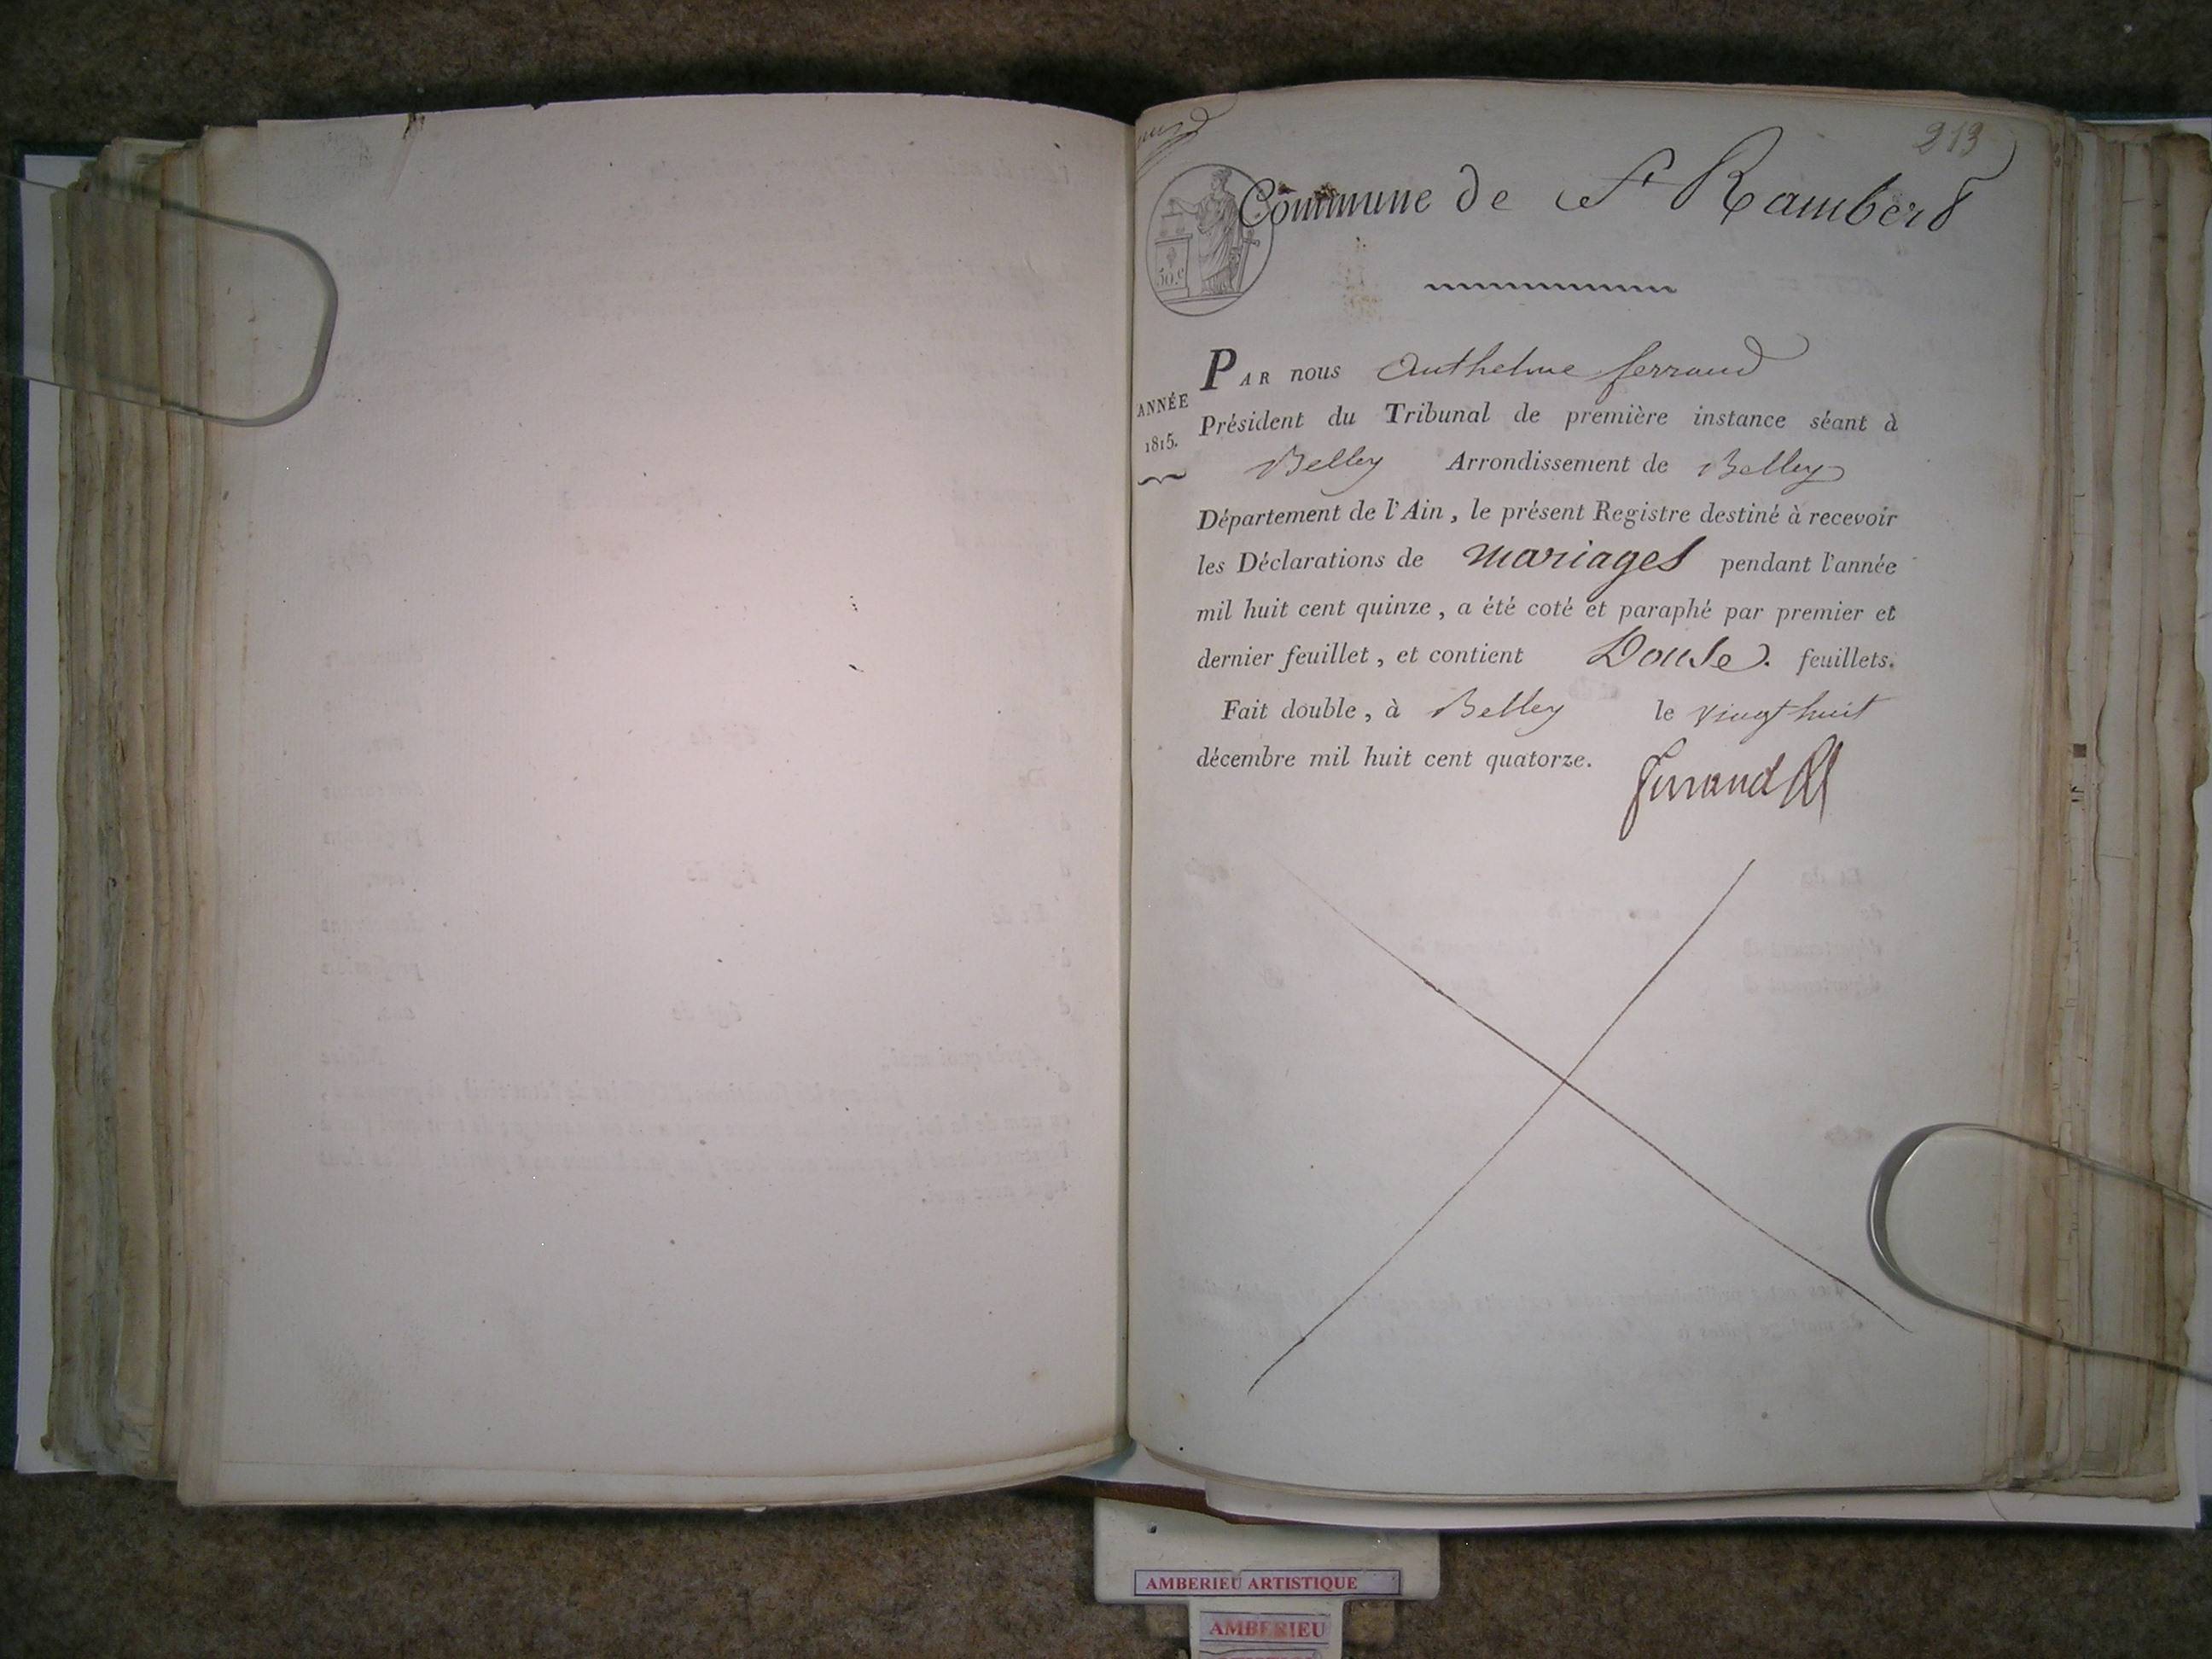 213
Commune de St Rambert
50.c
PAR nous Anthelme ferrand
ANNÉE
1815.
Président du Tribunal de première instance séant à
Belley Arrondissement de Belley
Département de l'Ain, le présent Registre destiné à recevoir
les Déclarations de mariages pendant l'année
mil huit cent quinze, a été coté et paraphé par premier et
dernier feuillet, et contient Douse. feuillets.
Fait double, à Belley le vingt huit
décembre mil huit cent quatorze.
ferrand
AMBERIEU ARTISTIQUE
AMBERIEU